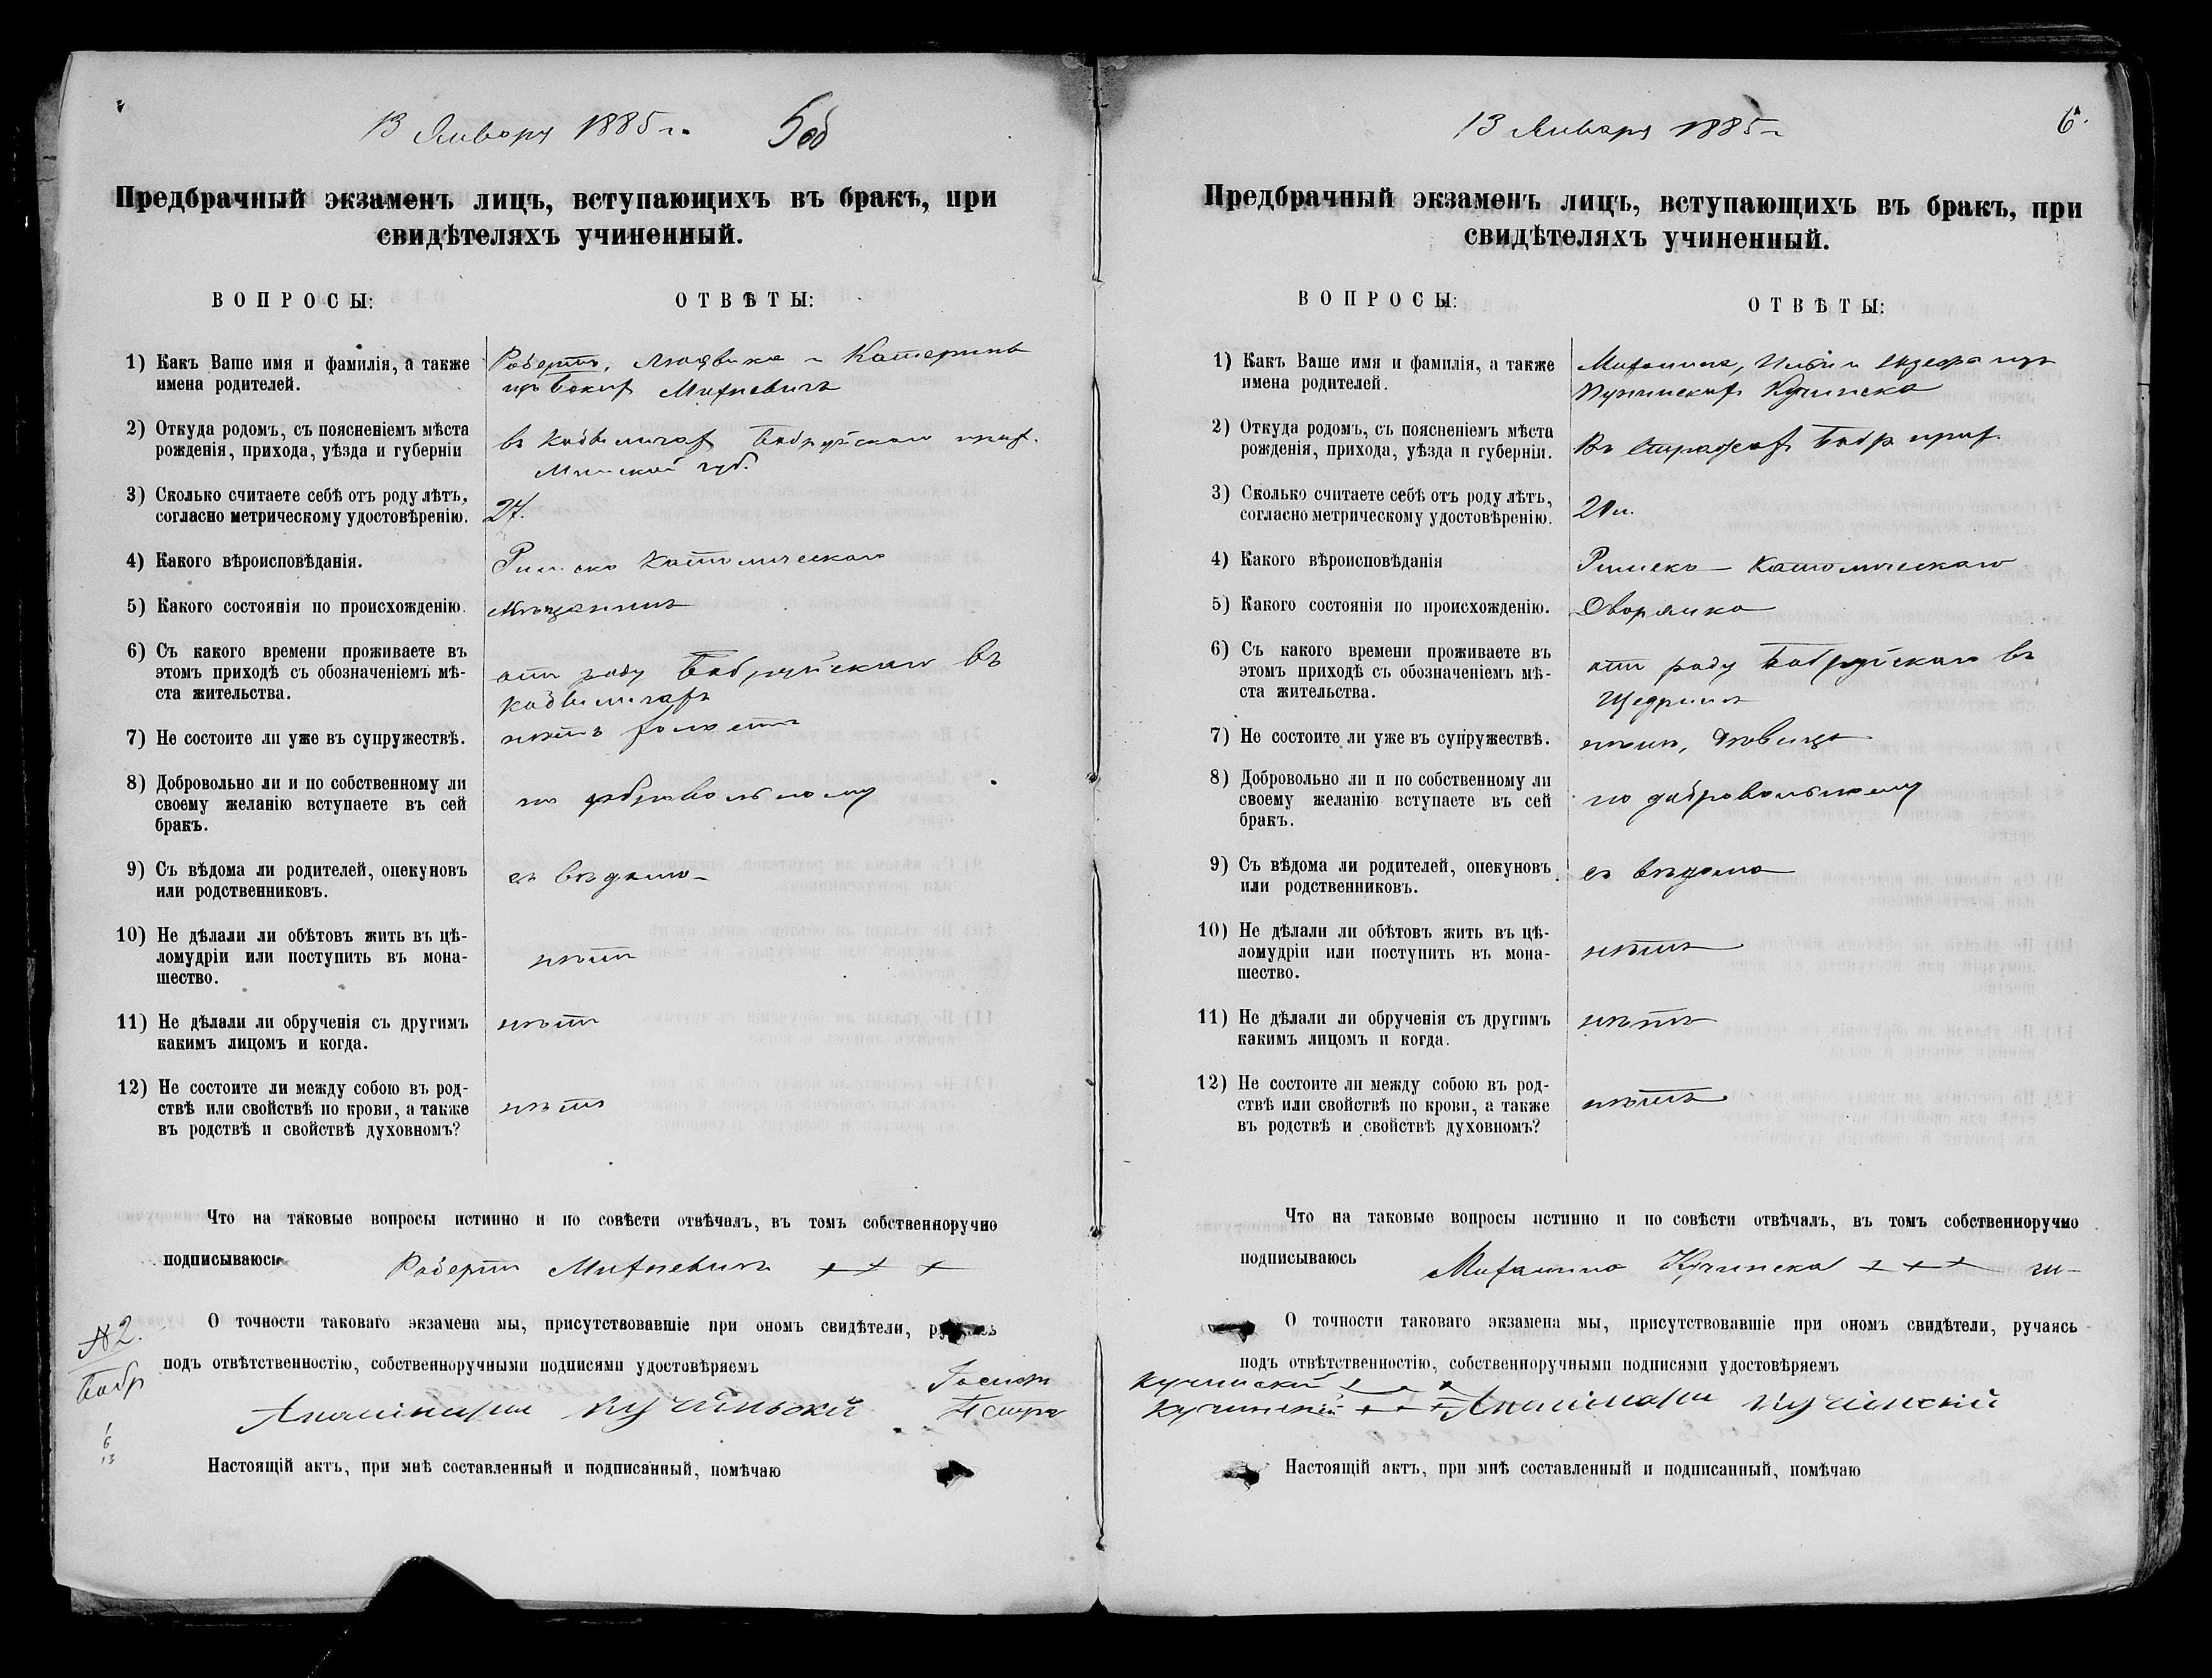 13 Января 1885 г.
5 об
Предбрачный экзаменъ лицъ, вступающихъ въ бракъ, при
свидѣтеляхъ учиненный.
ВОПРОСЫ:
ОТВѢТЫ:
1) Какъ Ваше имя и фамилія, а также
имена родителей.
Робертъ, Людвика и Катерины
Михневичъ
2) Откуда родомъ, съ поясненіемъ мѣста
рожденія, прихода, уѣзда и губерніи
въ Бобруйскаго прих.
Минской губ.
3) Сколько считаете себѣ отъ роду лѣтъ,
согласно метрическому удостовѣренію.
27.
4) Какого вѣроисповѣданія.
Римско Католическаго
5) Какого состоянія по происхожденію.
Мѣщанинъ
6) Съ какого времени проживаете въ
этомъ приходѣ съ обозначеніемъ мѣ-
ста жительства.
отъ роду Бобруйскаго въ
7) Не состоите ли уже въ супружествѣ.
нѣтъ холостъ
8) Добровольно ли и по собственному ли
своему желанію вступаете въ сей
бракъ.
по добровольному
9) Съ вѣдома ли родителей, опекуновъ
или родственниковъ.
съ вѣдома
10) Не дѣлали ли обѣтовъ жить въ цѣ-
ломудріи или поступить въ мона-
шество.
нѣтъ
11) Не дѣлали ли обрученія съ другимъ
какимъ лицомъ и когда.
нѣтъ
12) Не состоите ли между собою въ род-
ствѣ или свойствѣ по крови, а также
въ родствѣ и свойствѣ духовномъ?
нѣтъ
Что на таковые вопросы истинно и по совѣсти отвѣчалъ, въ томъ собственноручно
подписываюсь
Робертъ Михневичъ + + +
О точности таковаго экзамена мы, присутствовавшіе при ономъ свидѣтели,
подъ отвѣтственностію, собственноручными подписями удостовѣряемъ
№ 2.
Бобр
6
13
Настоящій актъ, при мнѣ составленный и подписанный, помѣчаю
13 Января 1885 г
6.
Предбрачный экзаменъ лицъ, вступающихъ въ бракъ, при
свидѣтеляхъ учиненный.
ВОПРОСЫ:
ОТВѢТЫ:
1) Какъ Ваше имя и фамилія, а также
имена родителей.
Михалина,
Кучинска
2) Откуда родомъ, съ поясненіемъ мѣста
рожденія, прихода, уѣзда и губерніи.
Въ Бобр прих.
3) Сколько считаете себѣ отъ роду лѣтъ,
согласно метрическому удостовѣренію.
4) Какого вѣроисповѣданія
Римско - Католическаго
5) Какого состоянія по происхожденію.
Дворянка
6) Съ какого времени проживаете въ
этомъ приходѣ съ обозначеніемъ мѣ-
ста жительства.
отъ роду Бобруйскаго въ
Щедринѣ
7) Не состоите ли уже въ супружествѣ.
нѣтъ, дѣвица
8) Добровольно ли и по собственному ли
своему желанію вступаете въ сей
бракъ.
по добровольному
9) Съ вѣдома ли родителей, опекуновъ
или родственниковъ.
съ вѣдома
10) Не дѣлали ли обѣтовъ жить въ цѣ-
ломудріи или поступить въ мона-
шество.
нѣтъ
11) Не дѣлали ли обрученія съ другимъ
какимъ лицомъ и когда.
нѣтъ
12) Не состоите ли между собою въ род-
ствѣ или свойствѣ по крови, а также
въ родствѣ и свойствѣ духовномъ?
нѣтъ
Что на таковые вопросы истинно и по совѣсти отвѣчалъ, въ томъ собственноручно
подписываюсь
Михалина Кучинска + + +
О точности таковаго экзамена мы, присутствовавшіе при ономъ свидѣтели, ручаясь
подъ отвѣтственностію, собственноручными подписями удостовѣряемъ
Кучинскій
Кучинскій + + +
Настоящій актъ, при мнѣ составленный и подписанный, помѣчаю